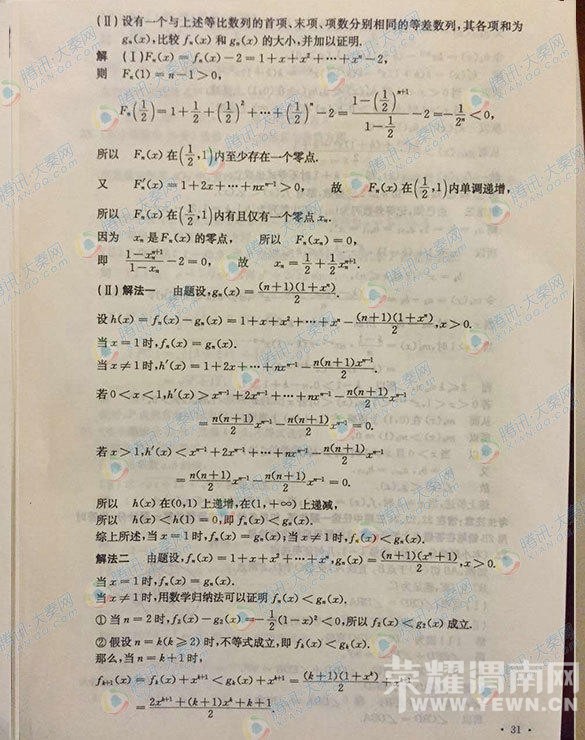 (Ⅱ)设有一个与上述等比数列的首项、末项、项数分别相同的等差数列,其各项和为
gₙ(x),比较 fₙ(x) 和 gₙ(x) 的大小,并加以证明.
解 (Ⅰ)Fₙ(x)=fₙ(x)-2=1+x+x²+…+xⁿ-2,
则 Fₙ(1)=n-1>0,
Fₙ(1/2)=1+1/2+(1/2)²+…+(1/2)ⁿ-2=(1-(1/2)ⁿ⁺¹)/(1-1/2)-2=-1/2ⁿ<0,
所以 Fₙ(x)在(1/2,1)内至少存在一个零点.
又 Fₙ′(x)=1+2x+…+nxⁿ⁻¹>0, 故 Fₙ(x)在(1/2,1)内单调递增,
所以 Fₙ(x)在(1/2,1)内有且仅有一个零点 xₙ.
因为 xₙ是Fₙ(x)的零点, 所以 Fₙ(xₙ)=0,
即 (1-xₙⁿ⁺¹)/(1-xₙ)-2=0, 故 xₙ=1/2+1/2xₙⁿ⁺¹.
(Ⅱ)解法一 由题设,gₙ(x)=(n+1)(1+xⁿ)/2.
设h(x)=fₙ(x)-gₙ(x)=1+x+x²+…+xⁿ-(n+1)(1+xⁿ)/2,x>0.
当x=1时,fₙ(x)=gₙ(x).
当x≠1时,h′(x)=1+2x+…+nxⁿ⁻¹-n(n+1)xⁿ⁻¹/2.
若0<x<1,h′(x)>xⁿ⁻¹+2xⁿ⁻¹+…+nxⁿ⁻¹-n(n+1)/2 xⁿ⁻¹
=n(n+1)/2 xⁿ⁻¹-n(n+1)/2 xⁿ⁻¹=0.
若x>1,h′(x)<xⁿ⁻¹+2xⁿ⁻¹+…+nxⁿ⁻¹-n(n+1)/2 xⁿ⁻¹
=n(n+1)/2 xⁿ⁻¹-n(n+1)/2 xⁿ⁻¹=0.
所以 h(x)在(0,1)上递增,在(1,+∞)上递减,
所以 h(x)<h(1)=0,即 fₙ(x)<gₙ(x).
综上所述,当x=1时,fₙ(x)=gₙ(x);当x≠1时,fₙ(x)<gₙ(x).
解法二 由题设,fₙ(x)=1+x+x²+…+xⁿ,gₙ(x)=(n+1)(xⁿ+1)/2,x>0.
当x=1时,fₙ(x)=gₙ(x).
当x≠1时,用数学归纳法可以证明 fₙ(x)<gₙ(x).
①当n=2时,f₂(x)-g₂(x)=-1/2(1-x)²<0,所以f₂(x)<g₂(x)成立.
②假设n=k(k≥2)时,不等式成立,即fₖ(x)<gₖ(x).
那么,当n=k+1时,
fₖ₊₁(x)=fₖ(x)+xᵏ⁺¹<gₖ(x)+xᵏ⁺¹=(k+1)(1+xᵏ)/2+xᵏ⁺¹
=(2xᵏ⁺¹+(k+1)xᵏ+k+1)/2.
· 31 ·
荣耀渭南网
WWW.YEWN.CN
腾讯·大秦网
XIAN.QQ.COM